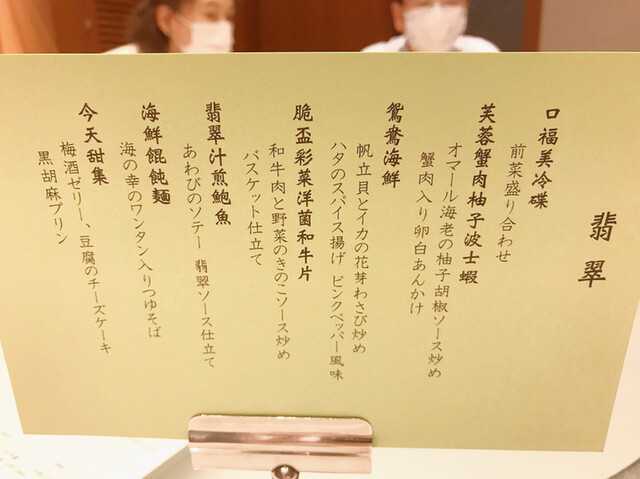 翡翠
口福美冷碟
前菜盛り合わせ
芙蓉蟹肉柚子波士蝦
オマール海老の柚子胡椒ソース炒め
蟹肉入り卵白あんかけ
鴛鴦海鮮
帆立貝とイカの花芽わさび炒め
ハタのスパイス揚げ ピンクペッパー風味
脆盃彩菜洋菌和牛片
和牛肉と野菜のきのこソース炒め
バスケット仕立て
翡翠汁煎鮑魚
あわびのソテー 翡翠ソース仕立て
海鮮餛飩麺
海の幸のワンタン入りつゆそば
今天甜集
梅酒ゼリー、豆腐のチーズケーキ
黒胡麻プリン